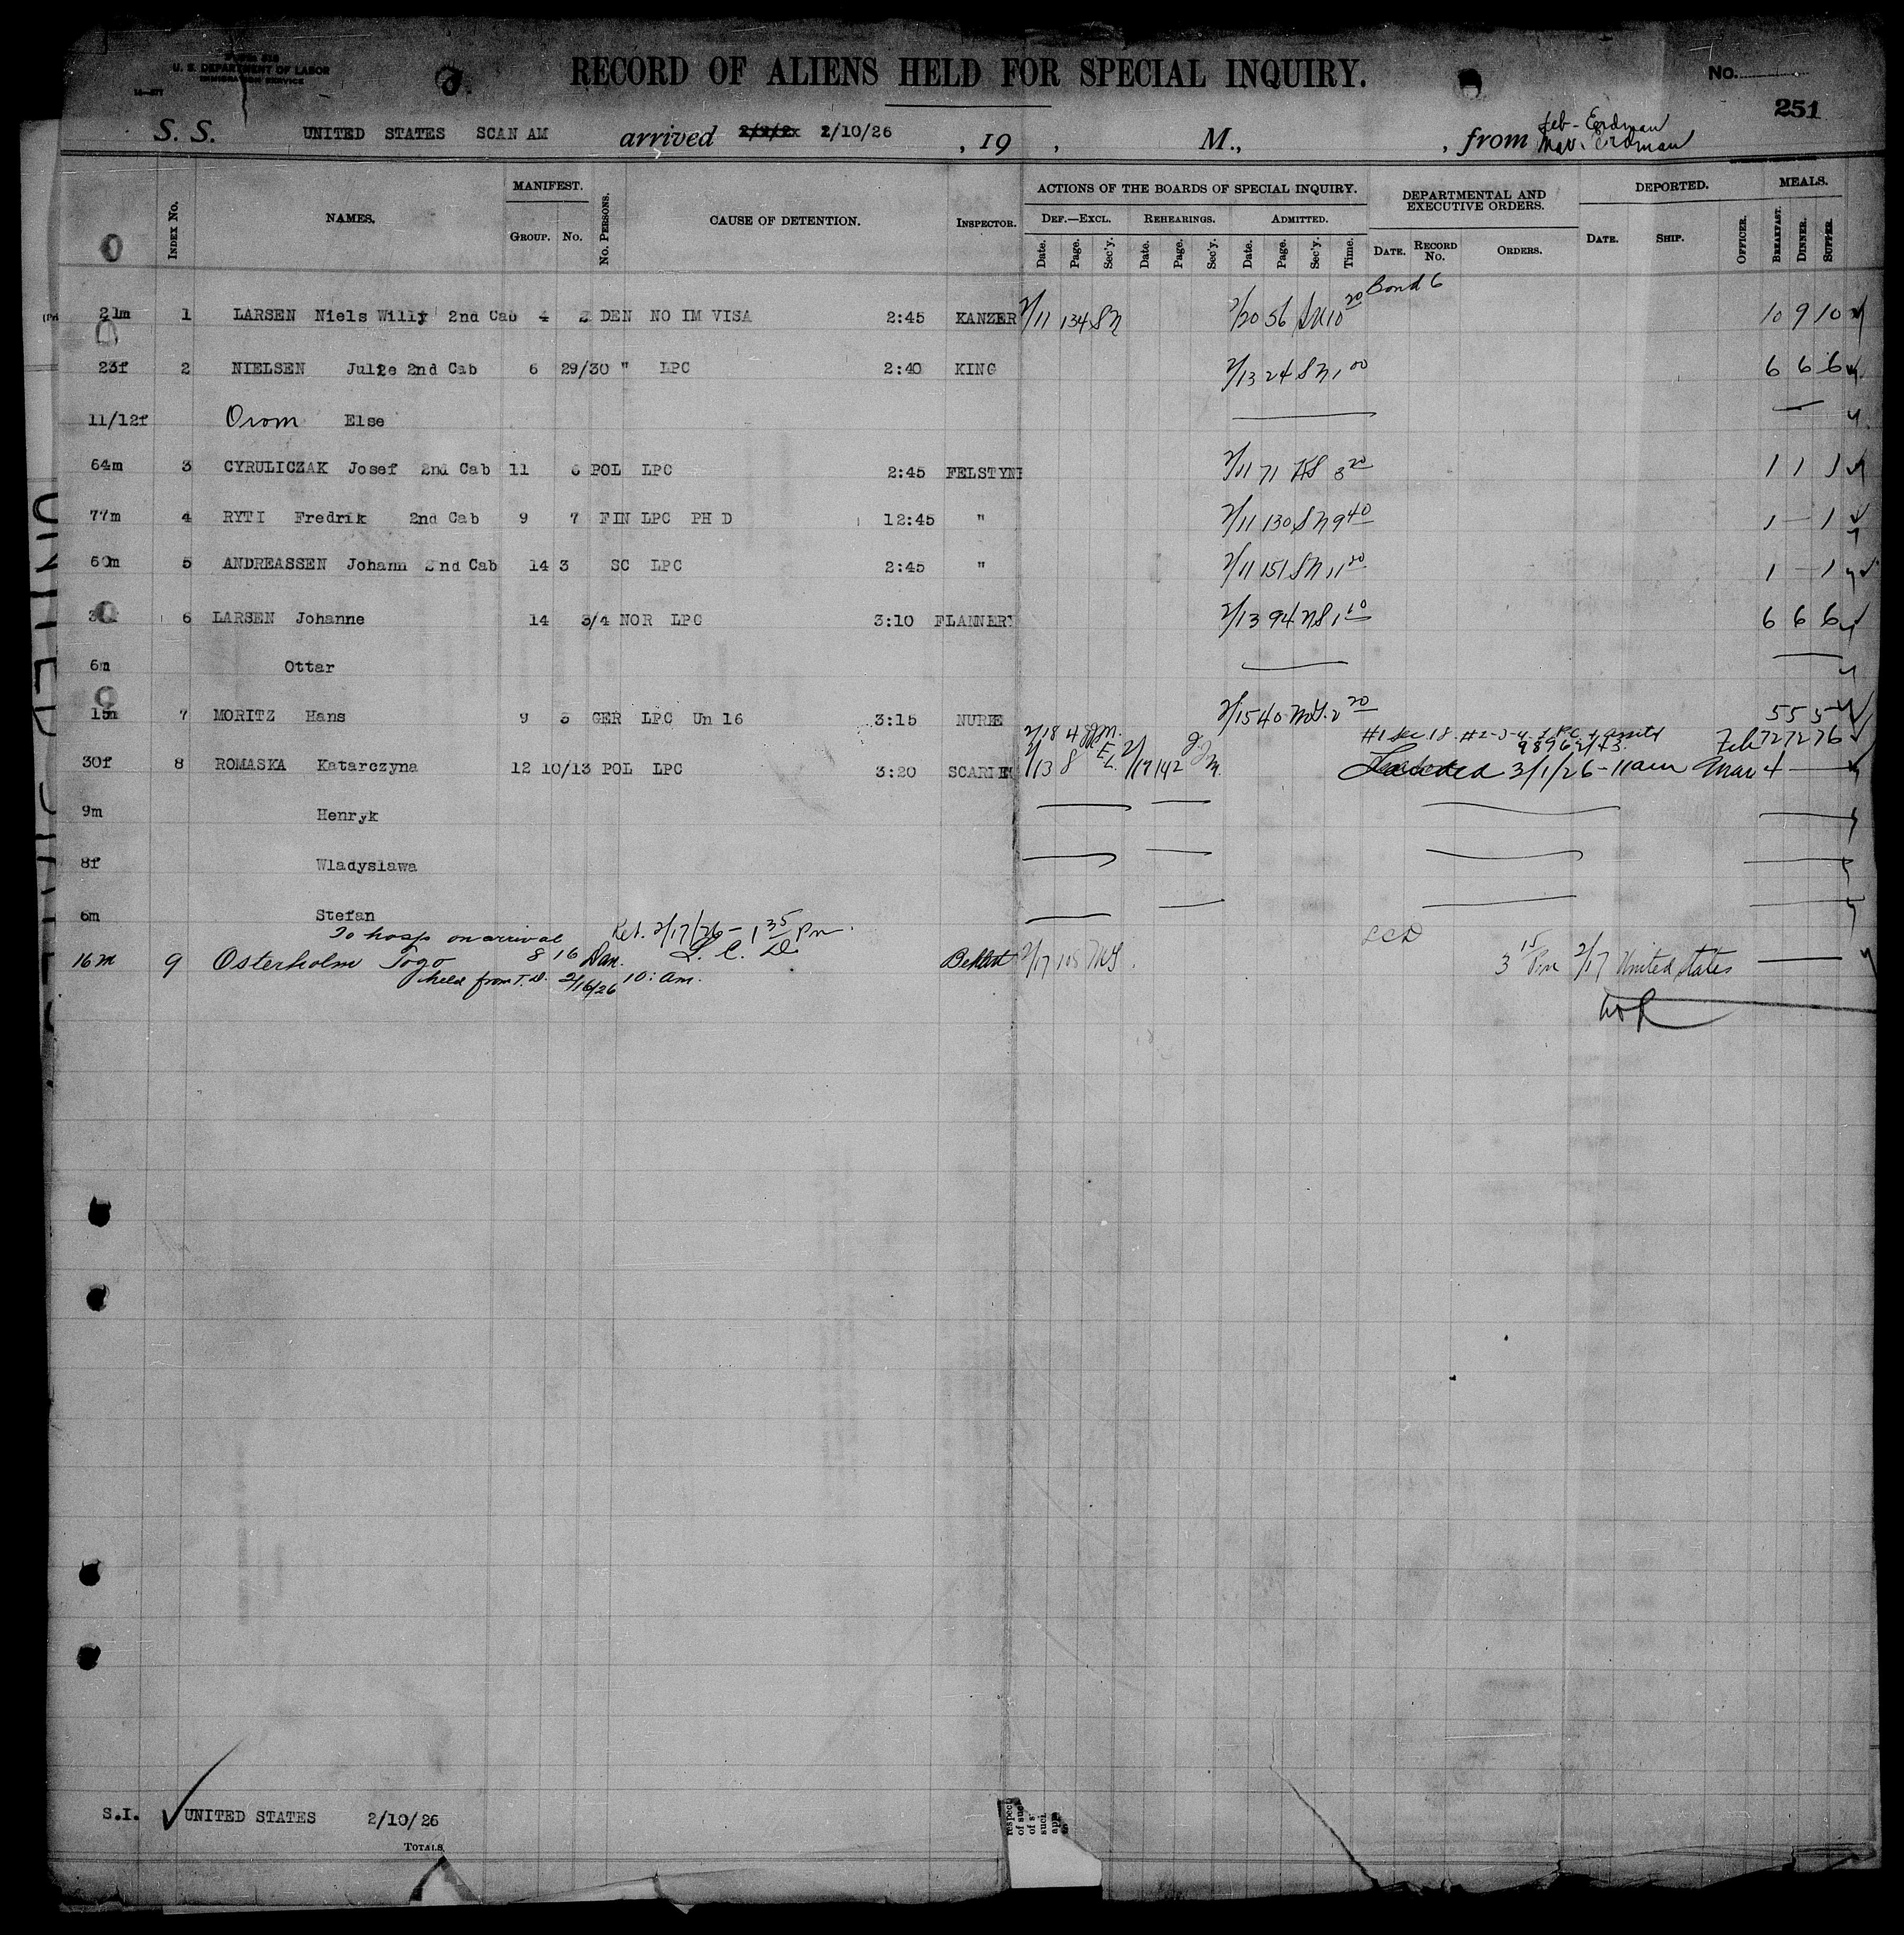 FORM 618
U. S. DEPARTMENT OF LABOR
IMMIGRATION SERVICE
RECORD OF ALIENS HELD FOR SPECIAL INQUIRY.
No.
251
S. S. UNITED STATES SCAN AM arrived 2/10/26 , 19 , M., , from Feb - Erdman
Mar. Erdman
INDEX No. NAMES. MANIFEST. GROUP. No. No. PERSONS. CAUSE OF DETENTION. INSPECTOR.
ACTIONS OF THE BOARDS OF SPECIAL INQUIRY. DEPARTMENTAL AND EXECUTIVE ORDERS. DEPORTED. MEALS.
DEF.—EXCL. REHEARINGS. ADMITTED.
Date. Page. Sec'y. Date. Page. Sec'y. Date. Page. Sec'y. Time. DATE. RECORD No. ORDERS. DATE. SHIP. OFFICER. BREAKFAST. DINNER. SUPPER.
Bond 6
21m 1 LARSEN Niels Willy 2nd Cab 4 DEN NO IM VISA 2:45 KANZER 2/11 134 SN 2/20 56 10 20 10 9 10
23f 2 NIELSEN Julie 2nd Cab 6 29/30 " LPC 2:40 KING 2/13 24 SN 1 00 6 6 6
11/12f Orom Else
64m 3 CYRULICZAK Josef 2nd Cab 11 6 POL LPC 2:45 FELSTYN 2/11 71 HS 3 20 1 1 1
77m 4 RYTI Fredrik 2nd Cab 9 7 FIN LPC PH D 12:45 " 2/11 130 SN 9 40 1 — 1
60m 5 ANDREASSEN Johann 2nd Cab 14 3 SC LPC 2:45 " 2/11 151 SN 11 20 1 — 1
6 LARSEN Johanne 14 3/4 NOR LPC 3:10 FLANNERY 2/13 94 NS 1 10 6 6 6
6m Ottar
15m 7 MORITZ Hans 9 3 GER LPC Un 16 3:15 NURKE 2/15 40 20 5 5 5
2/18 4 #1 Sec 18. #2-3-4 LPC & assist
98962/43. Feb 72 72 76
30f 8 ROMASKA Katarczyna 12 10/13 POL LPC 3:20 2/13 8 2/17 142 3/1/26 - 11 am Mar 4
9m Henryk
8f Wladyslawa
6m Stefan
To hosp on arrival Ret. 2/17/26 - 1 35 Pm.
16m 9 Osterholm Togo 8 16 Dan. L. C. D. 2/17 3 15 Pm 2/17 United States
held from T.D. 2/16/26 10: am.
S.I. UNITED STATES 2/10/26
TOTALS